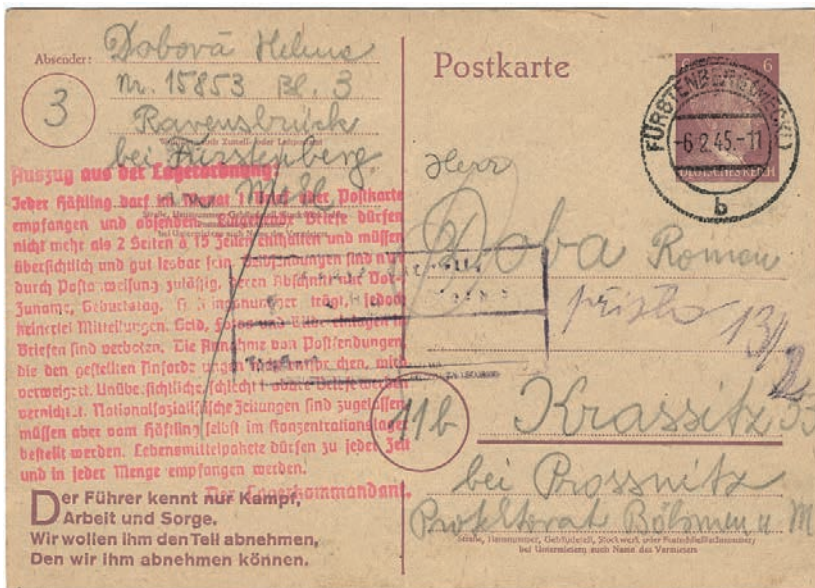 Absender: Dobová Helena
Nr. 15853 Bl. 3
3
Ravensbrück
bei Fürstenberg
Meckl
Straße, Hausnummer, Gebäudeteil, Stockwerk
bei Untermietern auch Name des Vermieters
Auszug aus der Lagerordnung:
Jeder Häftling darf im Monat 1 Brief oder Postkarte
empfangen und absenden. Eingehende Briefe dürfen
nicht mehr als 2 Seiten à 15 Zeilen enthalten und müssen
übersichtlich und gut lesbar sein. Geldsendungen sind nur
durch Postanweisung zulässig, deren Abschnitt nur Vor-
Zuname, Geburtstag, Häftlingsnummer trägt, jedoch
keinerlei Mitteilungen. Geld, Fotos und Bildereinlagen in
Briefen sind verboten. Die Annahme von Postsendungen,
die den gestellten Anforderungen nicht entsprechen, wird
verweigert. Unübersichtliche, schlecht lesbare Briefe werden
vernichtet. Nationalsozialistische Zeitungen sind zugelassen,
müssen aber vom Häftling selbst im Konzentrationslager
bestellt werden. Lebensmittelpakete dürfen zu jeder Zeit
und in jeder Menge empfangen werden.
Der Lagerkommandant.
Der Führer kennt nur Kampf,
Arbeit und Sorge.
Wir wollen ihm den Teil abnehmen,
Den wir ihm abnehmen können.
Postkarte
6
DEUTSCHES REICH
FÜRSTENBERG (MECKL)
-6.2.45.-11
b
Herr
Doba Roman
13/2
11b
Krassitz 33
bei Prossnitz
Protektorat Böhmen u M
Straße, Hausnummer, Gebäudeteil, Stockwerk oder Postschließfachnummer;
bei Untermietern auch Name des Vermieters